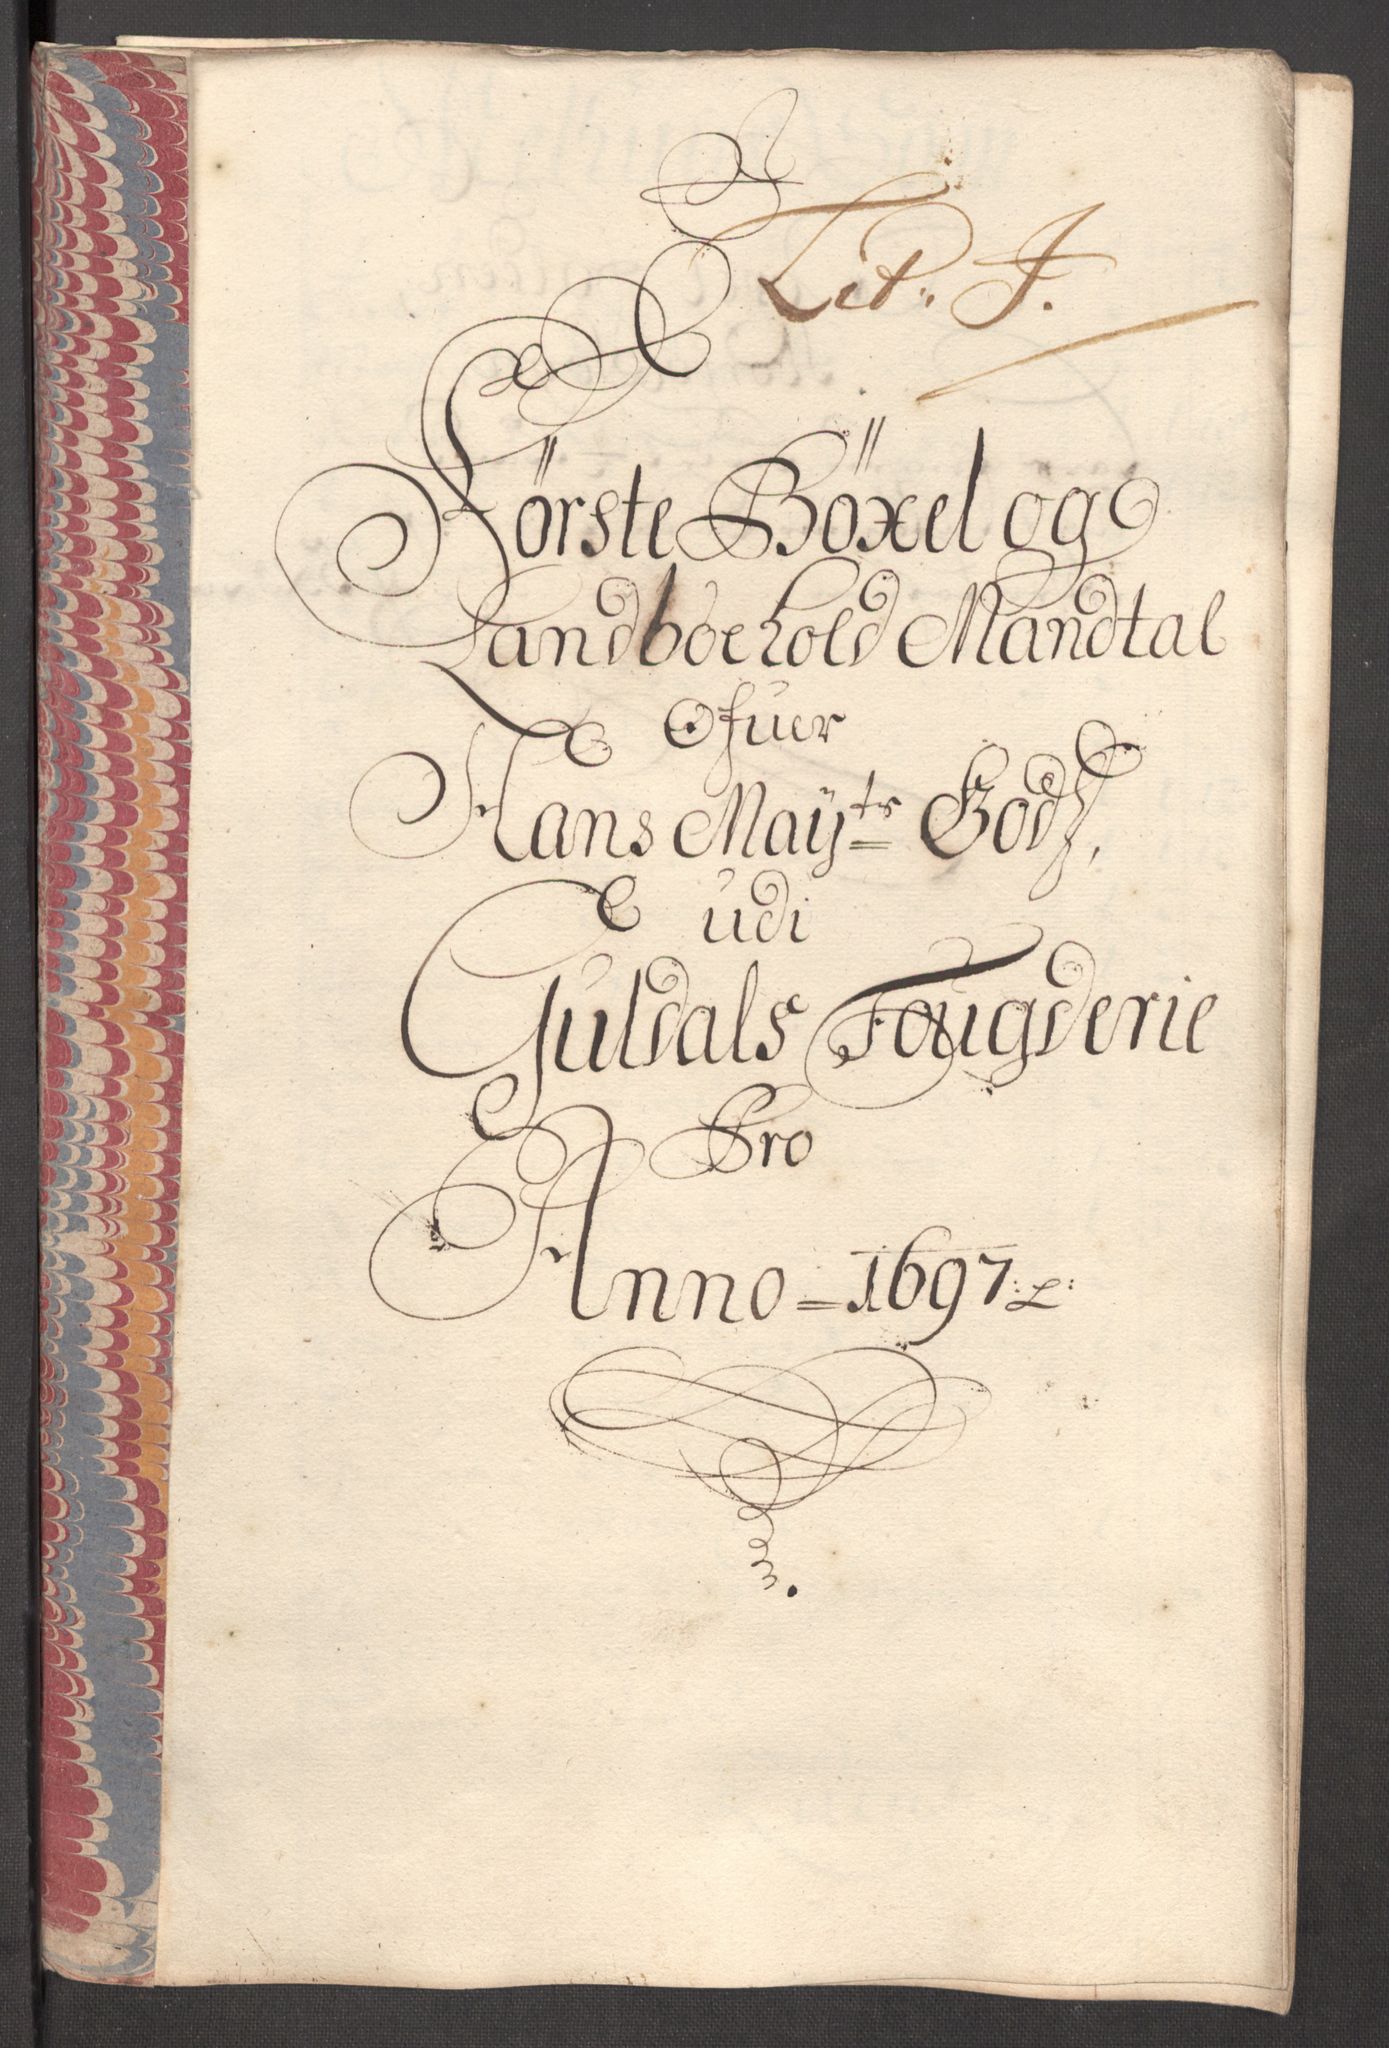 Lit: J.
Förste Böxel og
Landboehold Mandtal
ofuer
Hans Maÿ^ts Godz,
udi
Guldals Fougderie
Pro
Anno = 1697: